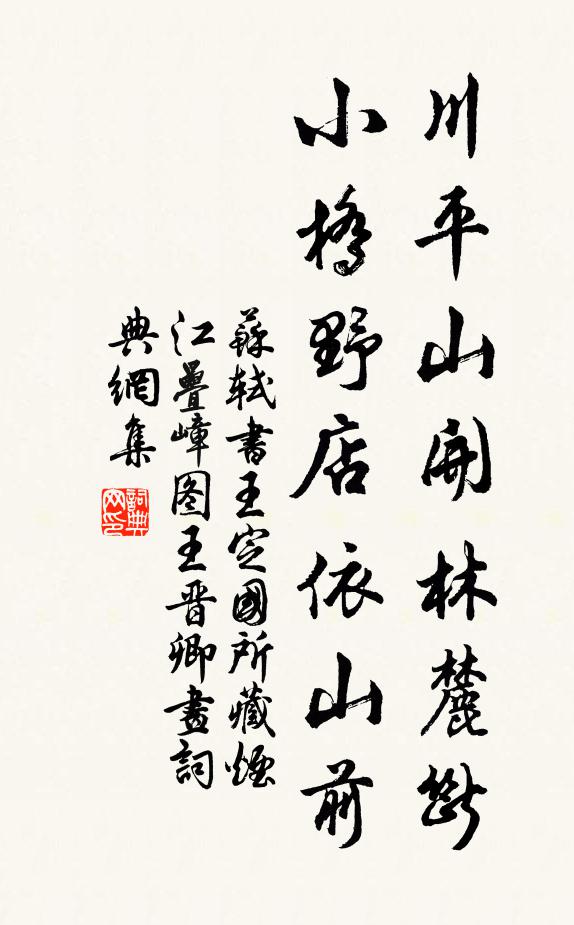 川平山開林麓斷
小橋野店依山前
蘇軾書王定國所藏煙
江疊嶂图王晋卿畫詞
典網集
詞典
网印